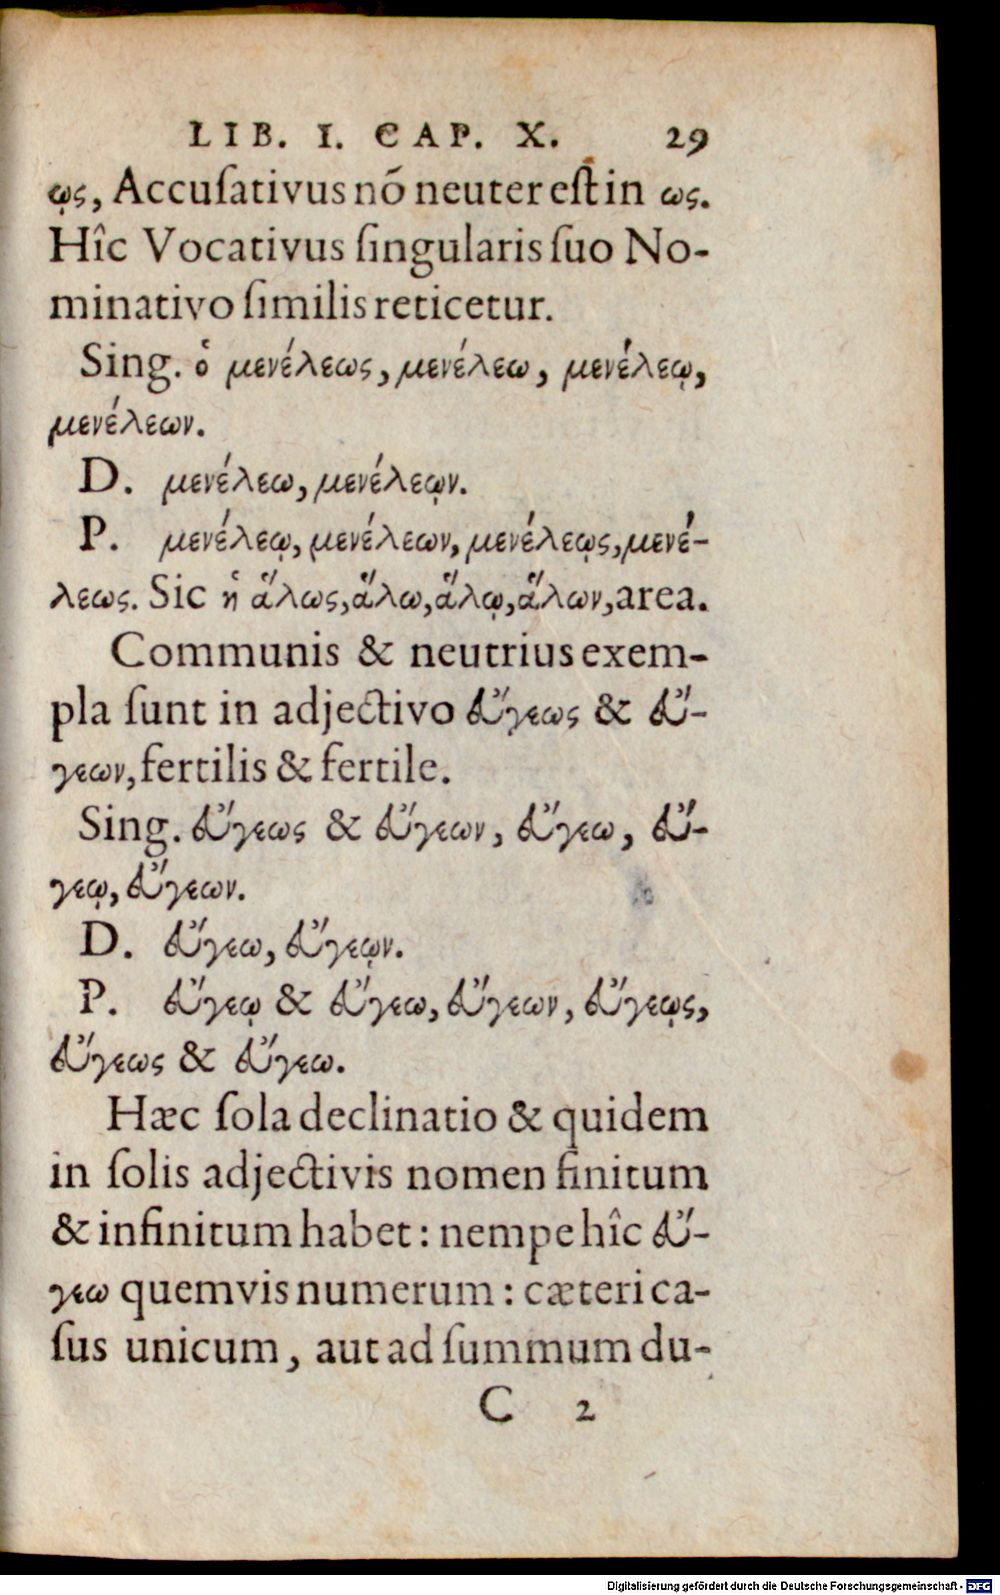 LIB. I. CAP. X. 29
ῳς, Accuſativus nō neuter eſt in ως.
Hîc Vocativus ſingularis ſuo No-
minativo ſimilis reticetur.
Sing. ὁ μενέλεως, μενέλεω, μενέλεῳ,
μενέλεων.
D. μενέλεω, μενέλεῳν.
P. μενέλεῳ, μενέλεων, μενέλεῳς, μενέ-
λεως. Sic ἡ ἅλως, ἅλω, ἅλῳ, ἅλων, area.
Communis & neutrius exem-
pla ſunt in adjectivo εὔγεως & εὔ-
γεων, fertilis & fertile.
Sing. εὔγεως & εὔγεων, εὔγεω, εὔ-
γεῳ, εὔγεων.
D. εὔγεω, εὔγεῳν.
P. εὔγεῳ & εὔγεω, εὔγεων, εὔγεῳς,
εὔγεως & εὔγεω.
Hæc ſola declinatio & quidem
in ſolis adjectivis nomen finitum
& infinitum habet: nempe hîc εὔ-
γεω quemvis numerum: cæteri ca-
ſus unicum, aut ad ſummum du-
C 2
Digitalisierung gefördert durch die Deutsche Forschungsgemeinschaft - DFG